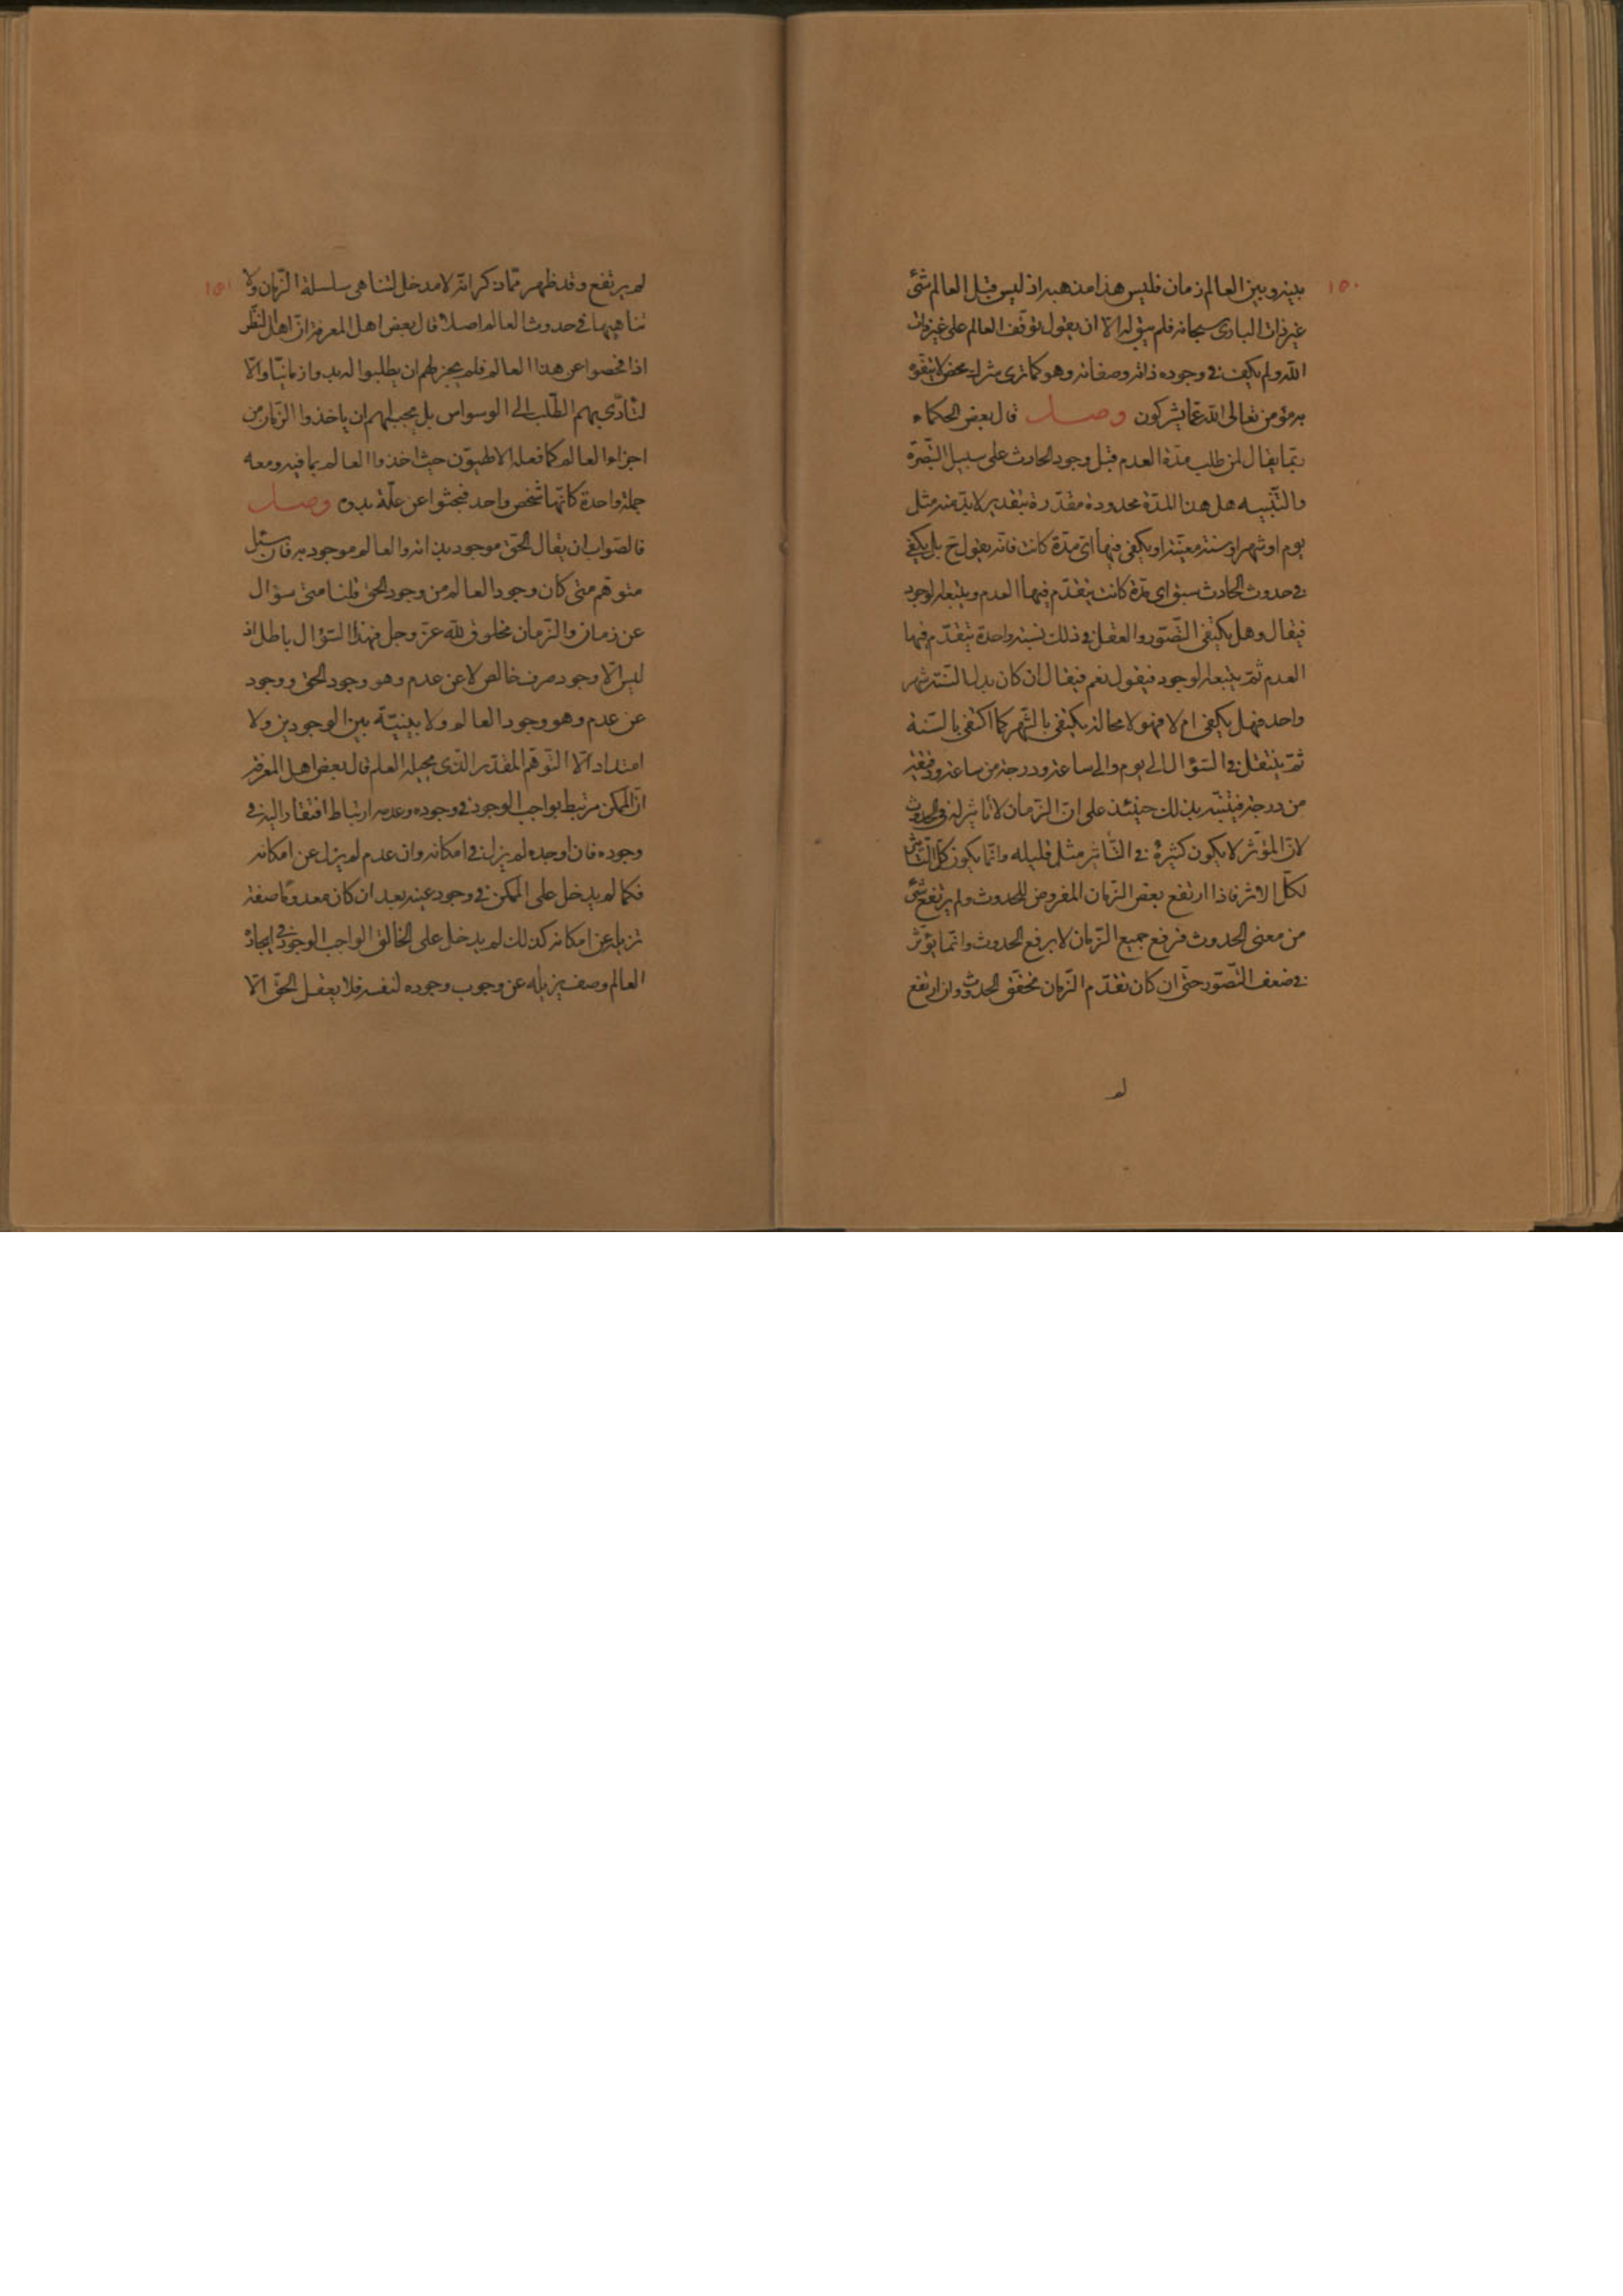 ١٥٠
بينه وبين العالم زمان فليس هذا مذهبه اذ ليس قبل العالم شئ
غير ذات الباري سبحانه فلم يبق له الا ان يقول بتوقف العالم على غير ذات
الله ولم يكف في وجوده ذاته وصفاته وهو كما ترى شرك محض لا يتفوه
به مؤمن تعالى الله عما يشركون وصل قال بعض الحكماء
ربما يقال لمن طلب مدة العدم قبل وجود الحادث على سبيل التبصرة
والتنبيه هل هذا المدة محدودة مقدرة بتقدير لا بد منه مثل
يوم او شهر او سنة معينة او يكفي فيها اى مدة كانت فانه يقول ح بل يكفي
في حدوث الحادث سبق اى مدة كانت يتقدم فيها العدم ويتبعه الوجود
فيقال وهل يكتفى التصور والعقل في ذلك بسنة واحدة يتقدم فيها
العدم ثم يتبعه الوجود فيقول نعم فيقال ان كان بدل السنة شهر
واحد فهل يكفي ام لا فهو لا محالة يكتفي بالشهر كما اكتفى بالسنة
ثم ينتقل في السؤال الى يوم والى ساعة ودرجة من ساعة ودقيقة
من درجة فيتنبه بذلك حينئذ على ان الزمان لا تاثير له في الحدوث
لان المؤثر لا يكون كثيره في التاثير مثل قليله وانما يكون كل التاثير
لكل الاثر فاذا ارتفع بعض الزمان المفروض للحدوث ولم يرتفع شئ
من معنى الحدوث فرفع جميع الزمان لا يرفع الحدوث وانما يؤثر
في ضعف التصور حتى ان كان تقدم الزمان تحقق الحدوث وان ارتفع
لم
١٥١
لم يرتفع وقد ظهر مما ذكر انه لا مدخل لتناهي سلسلة الزمان ولا
تناهيها في حدوث العالم اصلا قال بعض اهل المعرفة ان اهل النظر
اذا فحصوا عن هذا العالم فلم يجز لهم ان يطلبوا له بدوا زمانيا والا
لتادى بهم الطلب الى الوسواس بل يجب لهم ان ياخذوا الزمان من
اجزاء العالم كما فعله الاطيبون حيث اخذوا العالم بما فيه ومعه
جملة واحدة كانها شخص واحد فبحثوا عن علة بدوه وصل
فالصواب ان يقال الحق موجود بذاته والعالم موجود به فان سئل
متوهم متى كان وجود العالم من وجود الحق قلنا متى سؤال
عن زمان والزمان مخلوق لله عز وجل فهذا السؤال باطل اذ
ليس الا وجود صرف خالص لا عن عدم وهو وجود الحق ووجود
عن عدم وهو وجود العالم ولا بينية بين الوجودين ولا
امتداد الا التوهم المقدر الذي يحيله العلم قال بعض اهل المعرفة
ان الممكن مرتبط بواجب الوجود في وجوده وعدمه ارتباط افتقار اليه في
وجوده فان اوجده لم يزل في امكانه وان عدم لم يزل عن امكانه
فكما لم يدخل على الممكن في وجود عينه بعد ان كان معدوما صفة
تزيله عن امكانه كذلك لم يدخل على الخالق الواجب الوجود في ايجاده
العالم وصف يزيله عن وجوب وجوده لنفسه فلا يعقل الحق الا